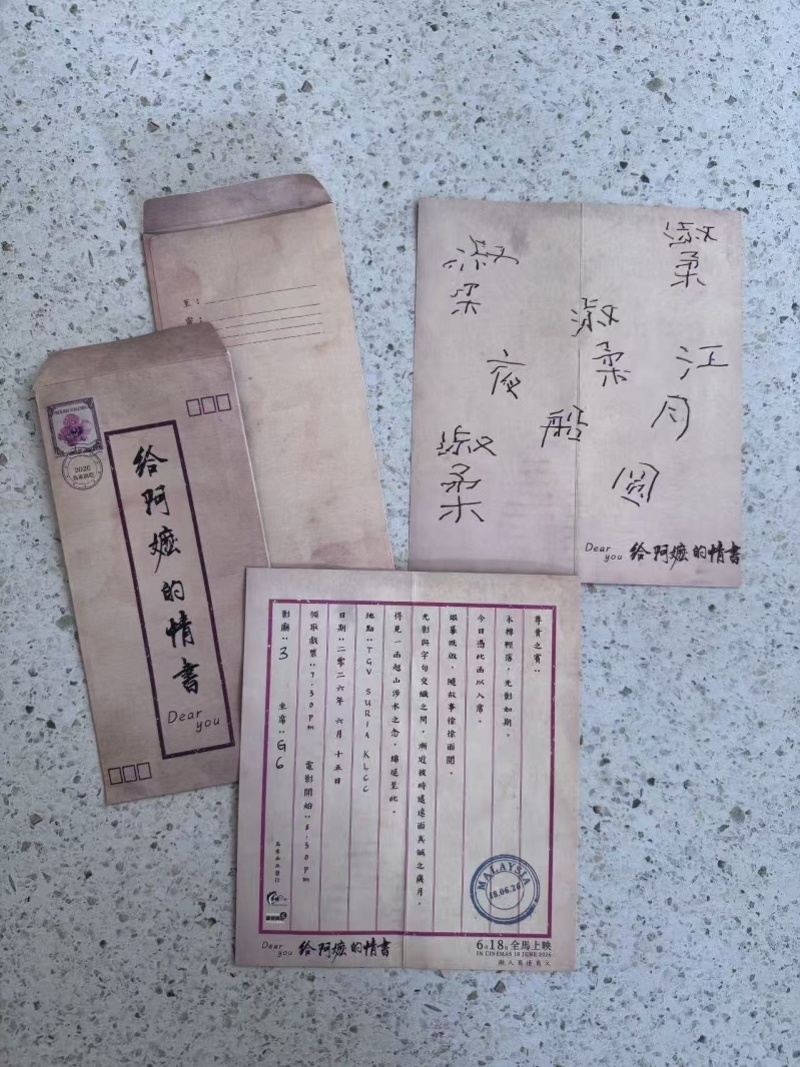 至：
給阿嬤的情書
Dear you
2026
淑柔
淑柔
淑柔
淑柔
江月圓
夜船
Dear you 給阿嬤的情書
尊貴之賓：
木棉輕落，光影如期。
今日憑此函以入席。
銀幕既啟，隨故事徐徐而開。
光影與字句交織之間，漸近彼時遙遠而真誠之歲月。
得見一函越山涉水之念，綿延至此。
地點：TGV SURIA KLCC
日期：二零二六年 六月 十五日
領取戲票：7.30pm 電影開始：8.30pm
影廳：3 座席：G6
MALAYSIA
18.06.26
Dear you 給阿嬤的情書
6月18日全馬上映
IN CINEMAS 18 JUNE 2026